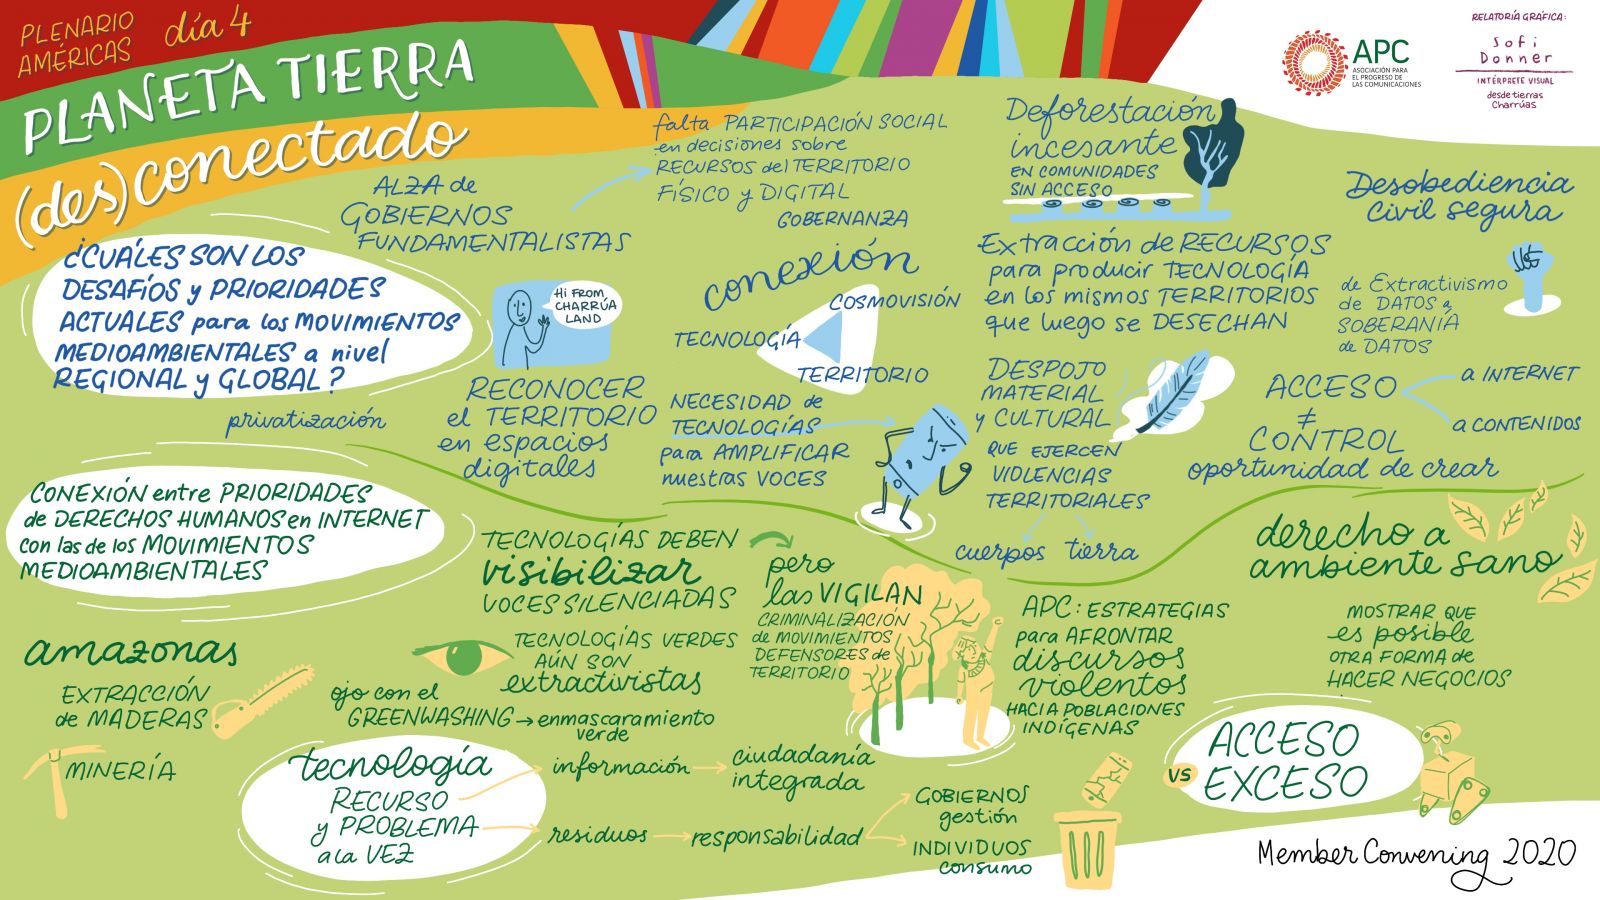 PLENARIO
AMÉRICAS
día 4
PLANETA TIERRA
(des)conectado
APC
ASOCIACIÓN PARA
EL PROGRESO DE
LAS COMUNICACIONES
RELATORÍA GRÁFICA:
Sofi
Donner
INTÉRPRETE VISUAL
desde tierras
Charrúas
¿CUÁLES SON LOS
DESAFÍOS y PRIORIDADES
ACTUALES para los MOVIMIENTOS
MEDIOAMBIENTALES a nivel
REGIONAL y GLOBAL?
privatización
ALZA de
GOBIERNOS
FUNDAMENTALISTAS
falta PARTICIPACIÓN SOCIAL
en decisiones sobre
RECURSOS del TERRITORIO
FÍSICO y DIGITAL
GOBERNANZA
Hi FROM
CHARRÚA
LAND
RECONOCER
el TERRITORIO
en espacios
digitales
conexión
COSMOVISIÓN
TECNOLOGÍA
TERRITORIO
NECESIDAD de
TECNOLOGÍAS
para AMPLIFICAR
nuestras VOCES
Deforestación
incesante
EN COMUNIDADES
SIN ACCESO
Extracción de RECURSOS
para producir TECNOLOGÍA
en los mismos TERRITORIOS
que luego se DESECHAN
DESPOJO
MATERIAL
y CULTURAL
QUE EJERCEN
VIOLENCIAS
TERRITORIALES
cuerpos tierra
Desobediencia
civil segura
de Extractivismo
de DATOS a
SOBERANÍA
de DATOS
ACCESO
≠
CONTROL
a INTERNET
a CONTENIDOS
oportunidad de crear
CONEXIÓN entre PRIORIDADES
de DERECHOS HUMANOS en INTERNET
con las de los MOVIMIENTOS
MEDIOAMBIENTALES
amazonas
EXTRACCIÓN
de MADERAS
MINERÍA
TECNOLOGÍAS DEBEN
visibilizar
VOCES SILENCIADAS
pero
las VIGILAN
CRIMINALIZACIÓN
de MOVIMIENTOS
DEFENSORES de
TERRITORIO
TECNOLOGÍAS VERDES
AÚN SON
extractivistas
ojo con el
GREENWASHING → enmascaramiento
verde
tecnología
RECURSO
y PROBLEMA
a la VEZ
información → ciudadanía
integrada
residuos → responsabilidad
GOBIERNOS
gestión
INDIVIDUOS
consumo
APC: ESTRATEGIAS
para AFRONTAR
discursos
violentos
HACIA POBLACIONES
INDÍGENAS
derecho a
ambiente sano
MOSTRAR QUE
es posible
OTRA FORMA de
HACER NEGOCIOS
ACCESO
VS
EXCESO
Member Convening 2020